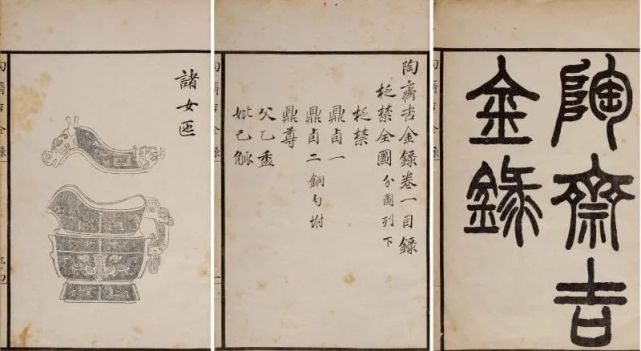 陶齋吉
金錄
陶齋吉金錄卷一目錄
柉禁全圖 分圖列下
柉禁
鼎卣一
鼎卣二 銅勺坿
鼎尊
父乙盉
妣己觚
諸女匜